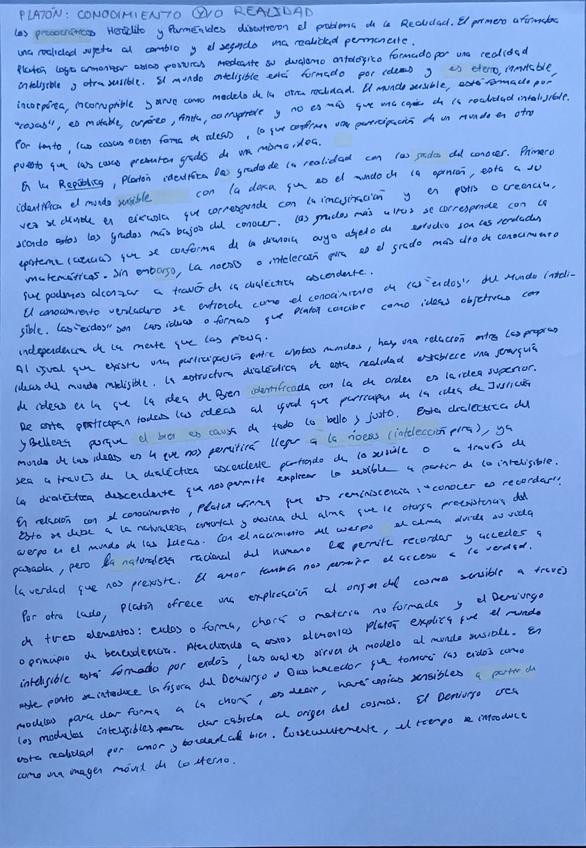 PLATÓN: CONOCIMIENTO Y/O REALIDAD
Los presocráticos Heráclito y Parménides discutieron el problema de la Realidad. El primero afirmaba
una realidad sujeta al cambio y el segundo una realidad permanente.
Platón logra armonizar estas posturas mediante su dualismo ontológico formado por una realidad
inteligible y otra sensible. El mundo inteligible está formado por ideas y es eterno, inmutable,
incorpórea, incorruptible y sirve como modelo de la otra realidad. El mundo sensible, está formado por
"cosas", es mutable, corpóreo, finita, corruptible y no es más que una copia de la realidad inteligible.
Por tanto, las cosas tienen forma de ideas, lo que confirma una participación de un mundo en otro
puesto que las cosas presentan grados de una misma idea.
En la República, Platón identifica los grados de la realidad con los grados del conocer. Primero
identifica el mundo sensible con la doxa que es el mundo de la opinión, esta a su
vez se divide en eikasía que corresponde con la imaginación y en pistis o creencia,
siendo estos los grados más bajos del conocer. Los grados más altos se corresponde con la
episteme (ciencia) que se conforma de la dianoia cuyo objeto de estudio son las verdades
matemáticas. Sin embargo, la noesis o intelección pura es el grado más alto de conocimiento
que podemos alcanzar a través de la dialéctica ascendente.
El conocimiento verdadero se entiende como el conocimiento de las "eidos" del Mundo inteli-
gible. Las "eidos" son las ideas o formas que Platón concibe como ideas objetivas con
independencia de la mente que las piensa.
Al igual que existe una participación entre ambos mundos, hay una relación entre las propias
ideas del mundo inteligible. La estructura dialéctica de esta realidad establece una jerarquía
de ideas en la que la idea de Bien identificada con la de orden es la idea superior.
De esta participan todas las ideas al igual que participan de la idea de Justicia
y Belleza porque el bien es causa de todo lo bello y justo. Esta dialéctica del
mundo de las ideas es la que nos permitirá llegar a la noesis (intelección pura), ya
sea a través de la dialéctica ascendente partiendo de lo sensible o a través de
la dialéctica descendente que nos permite explicar lo sensible a partir de lo inteligible.
En relación con el conocimiento, Platón afirma que es reminiscencia: "conocer es recordar".
Esto se debe a la naturaleza inmortal y divina del alma que le otorga preexistencia del
cuerpo en el mundo de las Ideas. Con el nacimiento del cuerpo el alma olvida su vida
pasada, pero la naturaleza racional del humano le permite recordar y acceder a
la verdad que nos preexiste. El amor también nos permite el acceso a la verdad.
Por otro lado, Platón ofrece una explicación al origen del cosmos sensible a través
de tres elementos: eidos o forma, chorá o materia no formada y el Demiurgo
o principio de benevolencia. Atendiendo a estos elementos Platón explica que el mundo
inteligible está formado por eidos, las cuales sirven de modelo al mundo sensible. En
este punto se introduce la figura del Demiurgo o Dios hacedor que tomará las eidos como
modelos para dar forma a la chorá, es decir, hará copias sensibles a partir de
los modelos inteligibles para dar cabida al origen del cosmos. El Demiurgo crea
esta realidad por amor y bondad al bien. Consecuentemente, el tiempo se introduce
como una imagen móvil de lo eterno.